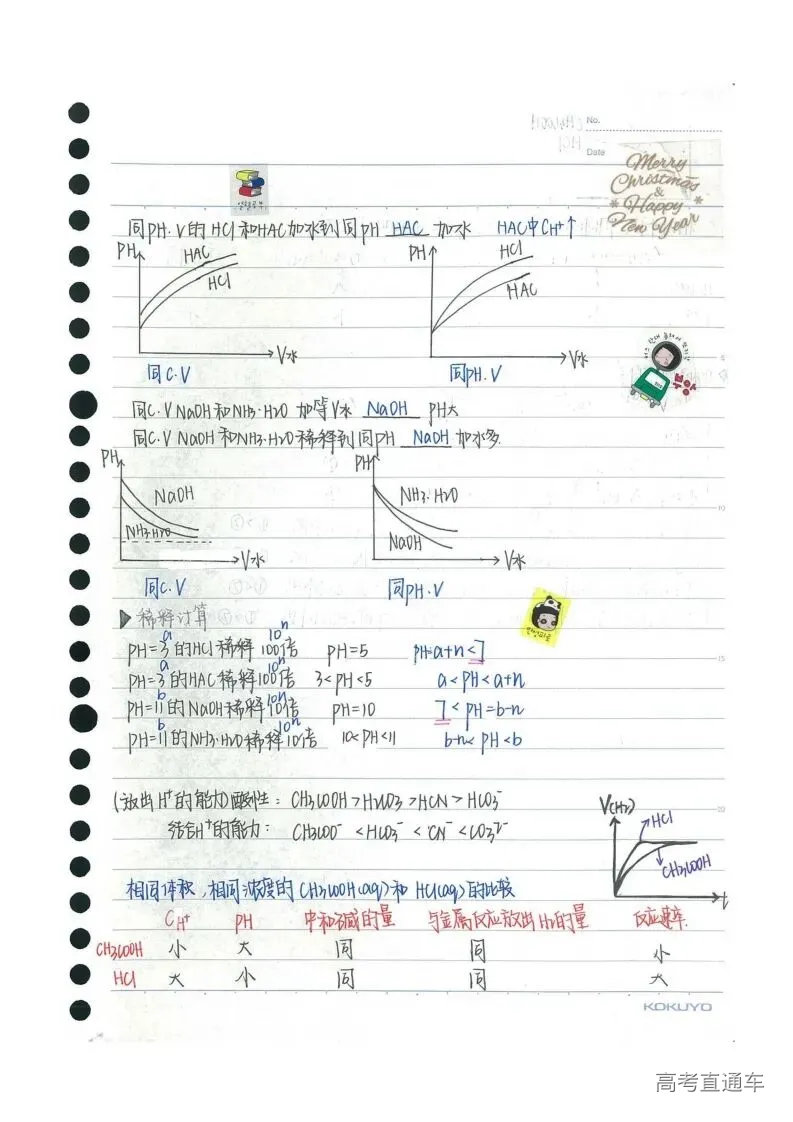 No.
Date
Merry
Christmas
&
Happy
New Year
同PH.V的HCl和HAC加水到同PH HAC 加水 HAC中CH+↑
PH HAC HCl V水
同C.V
PH HCl HAC V水
同PH.V
同C.V NaOH和NH3·H2O 加等V水 NaOH PH大
同C.V NaOH和NH3·H2O稀释到同PH NaOH 加水多
PH NaOH NH3·H2O V水
同C.V
PH NH3·H2O NaOH V水
同PH.V
稀释计算
a 10ⁿ
PH=3的HCl稀释100倍 PH=5 PH=a+n<7
a 10ⁿ
PH=3的HAC稀释100倍 3<PH<5 a<PH<a+n
b 10ⁿ
PH=11的NaOH稀释10倍 PH=10 7<PH=b-n
b 10ⁿ
PH=11的NH3·H2O稀释10倍 10<PH<11 b-n<PH<b
(放出H⁺的能力)酸性: CH3COOH>H2CO3>HCN>HCO3⁻
结合H⁺的能力: CH3COO⁻<HCO3⁻<CN⁻<CO3²⁻
V(H2) HCl CH3COOH t
相同体积,相同浓度的CH3COOH(aq)和HCl(aq)的比较
CH+ PH 中和碱的量 与金属反应放出H2的量 反应速率
CH3COOH 小 大 同 同 小
HCl 大 小 同 同 大
KOKUYO
高考直通车